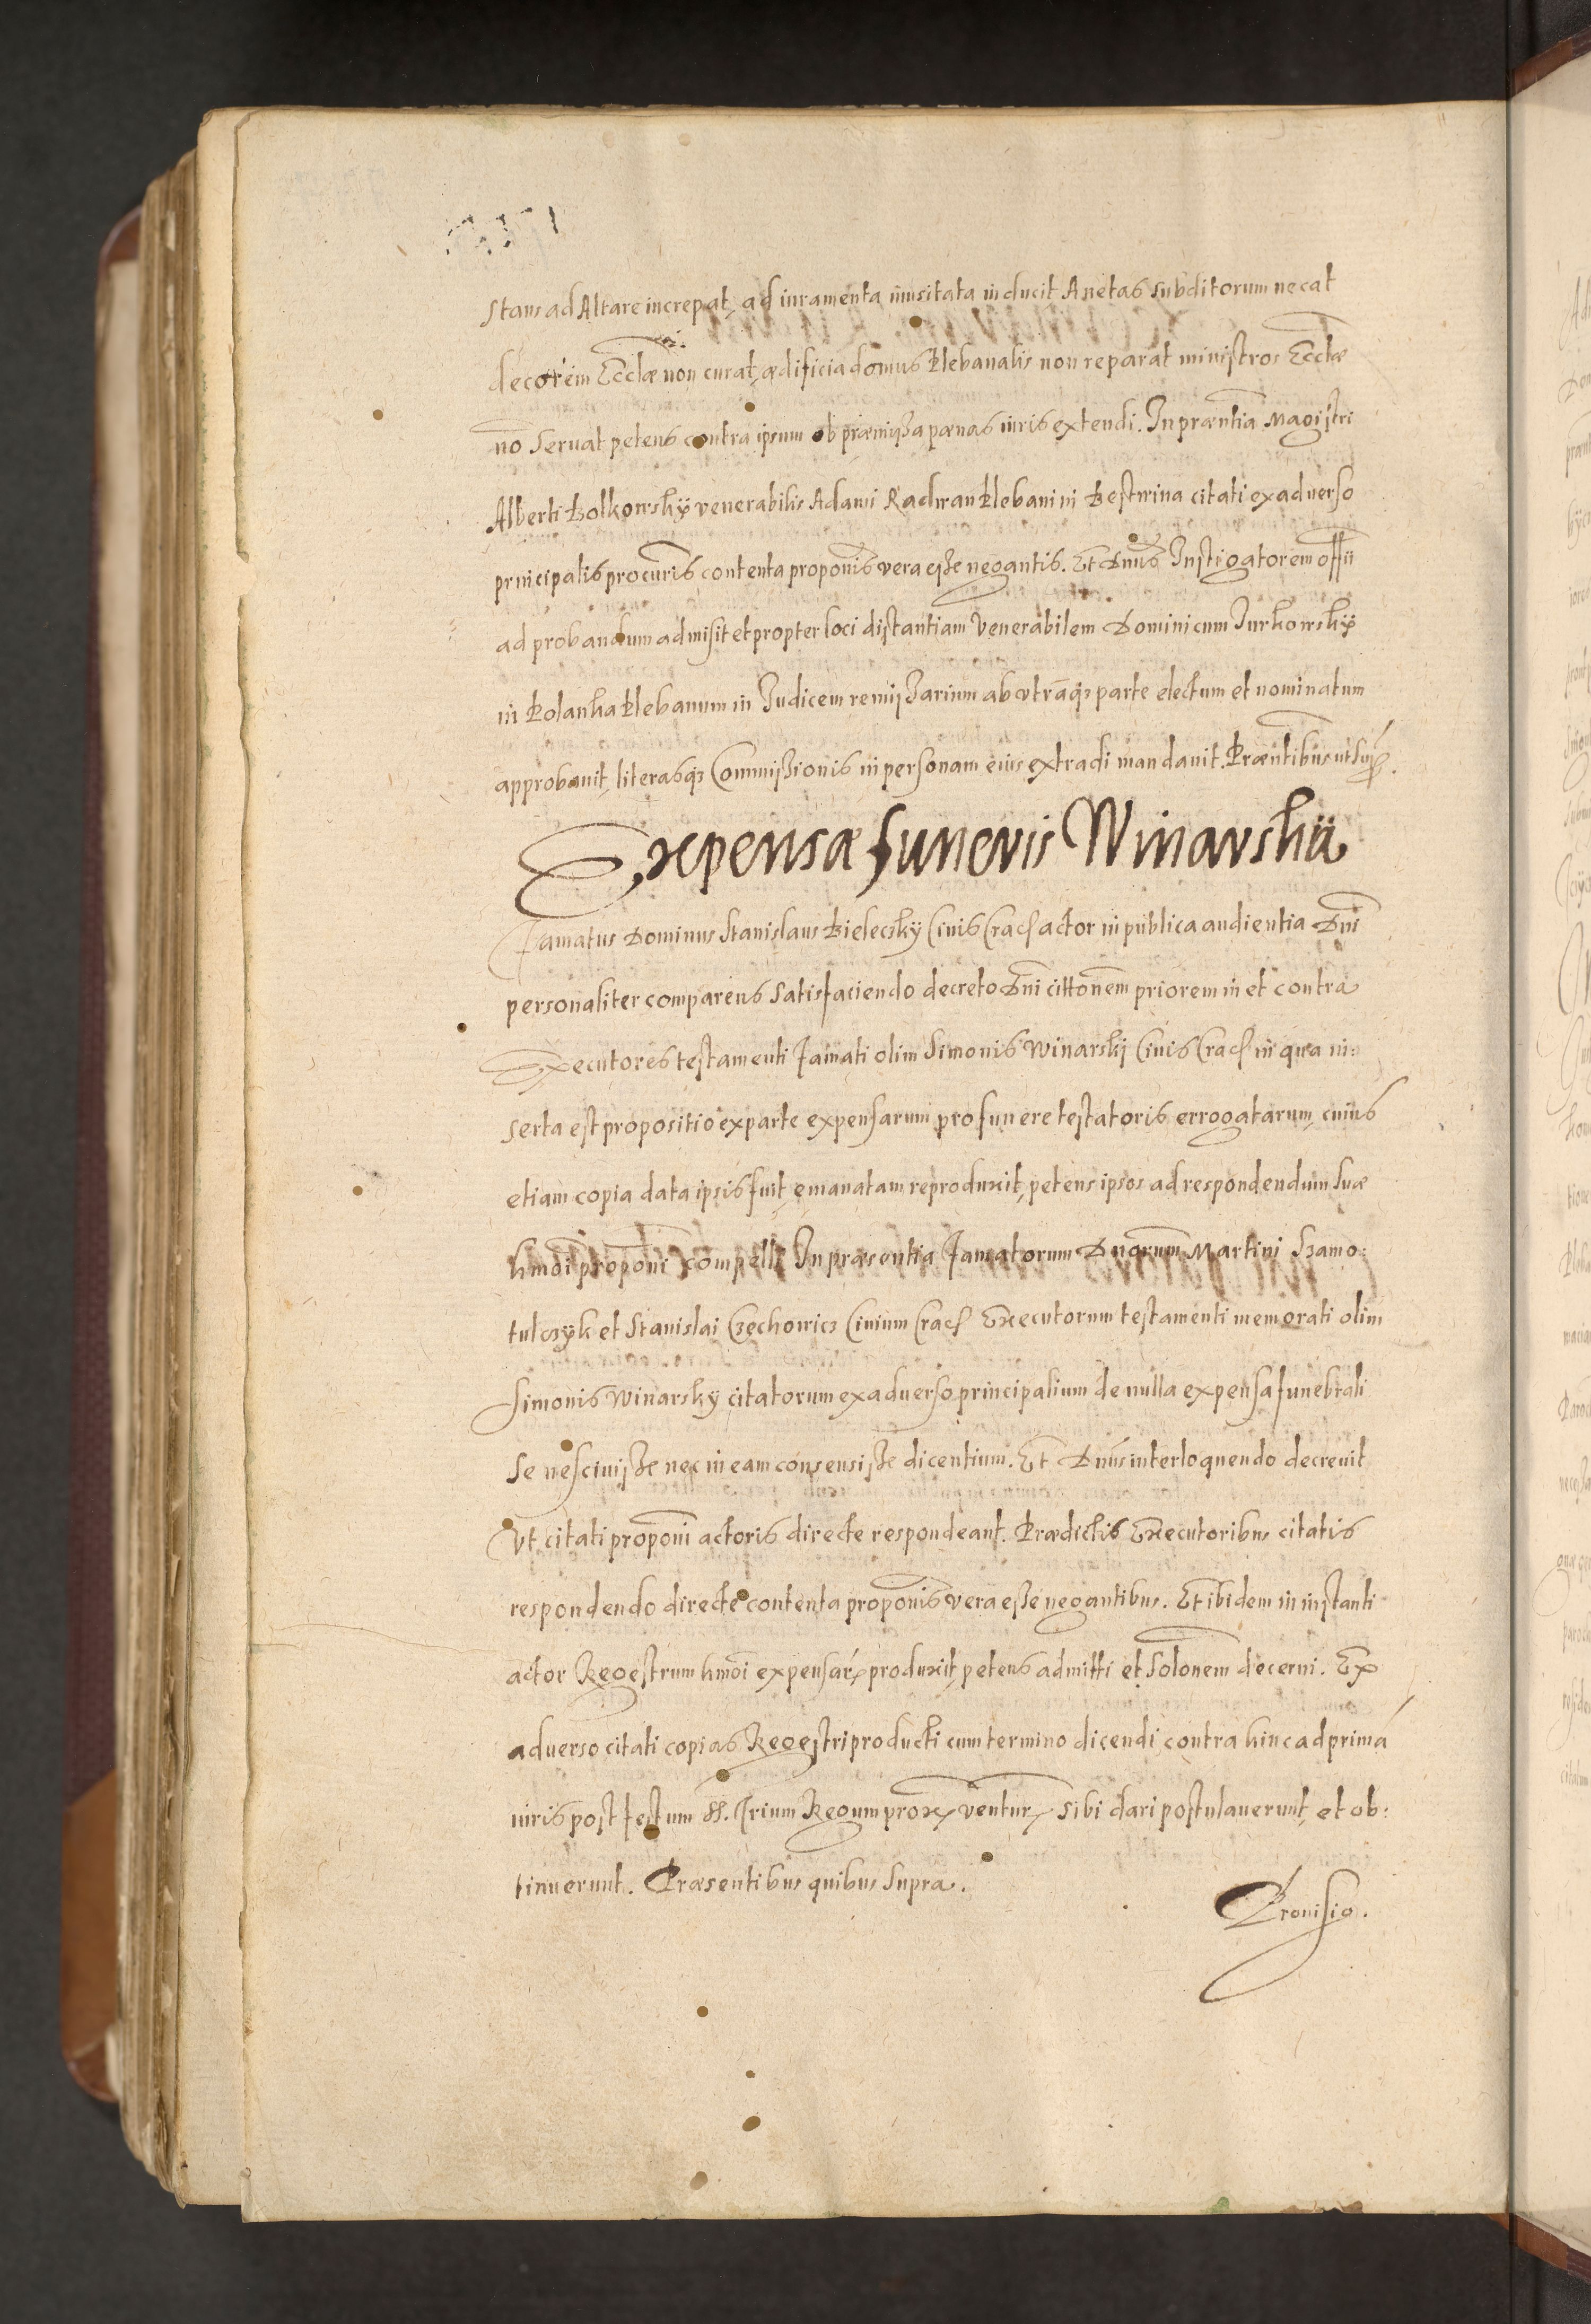 stans ad Altare increpat, ad iuramenta inusitata inducit Anetas subditorum necat
decorem Eccłæ non curat, ædificia domus Plebanalis non reparat ministros Eccłæ
nō seruat petens contra ipsum ob præmißa pænas iuris extendi. In præntia Magistri
Alberti Bolkowsky venerabilis Adami Radwan Plebani in Bestwina citati ex aduerso
principalis procuris contenta proponis vera eße negantis. Et Dnus Instigatorem offii
ad probandum admisit et propter loci distantiam Venerabilem Dominicum Jurkowsky
in Polanka Plebanum in Judicem remißarium ab vtraqз parte electum et nominatum
approbauit, literasqз Commißionis in personam eius extradi mandauit. Præntibus ut supr.
Expensæ funeris Winarskii
Famatus Dominus Stanislaus Bielecsky Ciuis Crac actor in publica audientia Dni
personaliter comparens satisfaciendo decreto Dni cittonem priorem in et contra
Executores testamenti famati olim Simonis Winarskj Ciuis Crac in qua in:
serta est propositio ex parte expensarum pro funere testatoris errogatarum, cuius
etiam copia data ipsis fuit, emanatam reproduxit, petens ipsos ad respondendum suæ
hmōi proponi compelli In præsentia famatorum Dnorum Martini Szamo:
tulczyk et Stanislai Czechowicz Ciuium Crac Executorum testamenti memorati olim
Simonis Winarsky citatorum ex aduerso principalium de nulla expensa funebrali
se nesciuiße nec in eam consensiße dicentium. Et Dnus interloquendo decreuit
Vt citati proponi actoris directe respondeant. Prædictis Executoribus citatis
respondendo directe contenta proponis vera eße negantibus. Et ibidem in instanti
actor Regestrum hmōi expensar produxit, petens admitti et solonem decerni. Ex
aduerso citati copias Regestri producti cum termino dicendi contra hinc ad primā
iuris post festum SS. Trium Regum prox ventur sibi dari postulauerunt, et ob:
tinuerunt. Præsentibus quibus supra.
Prouisio.